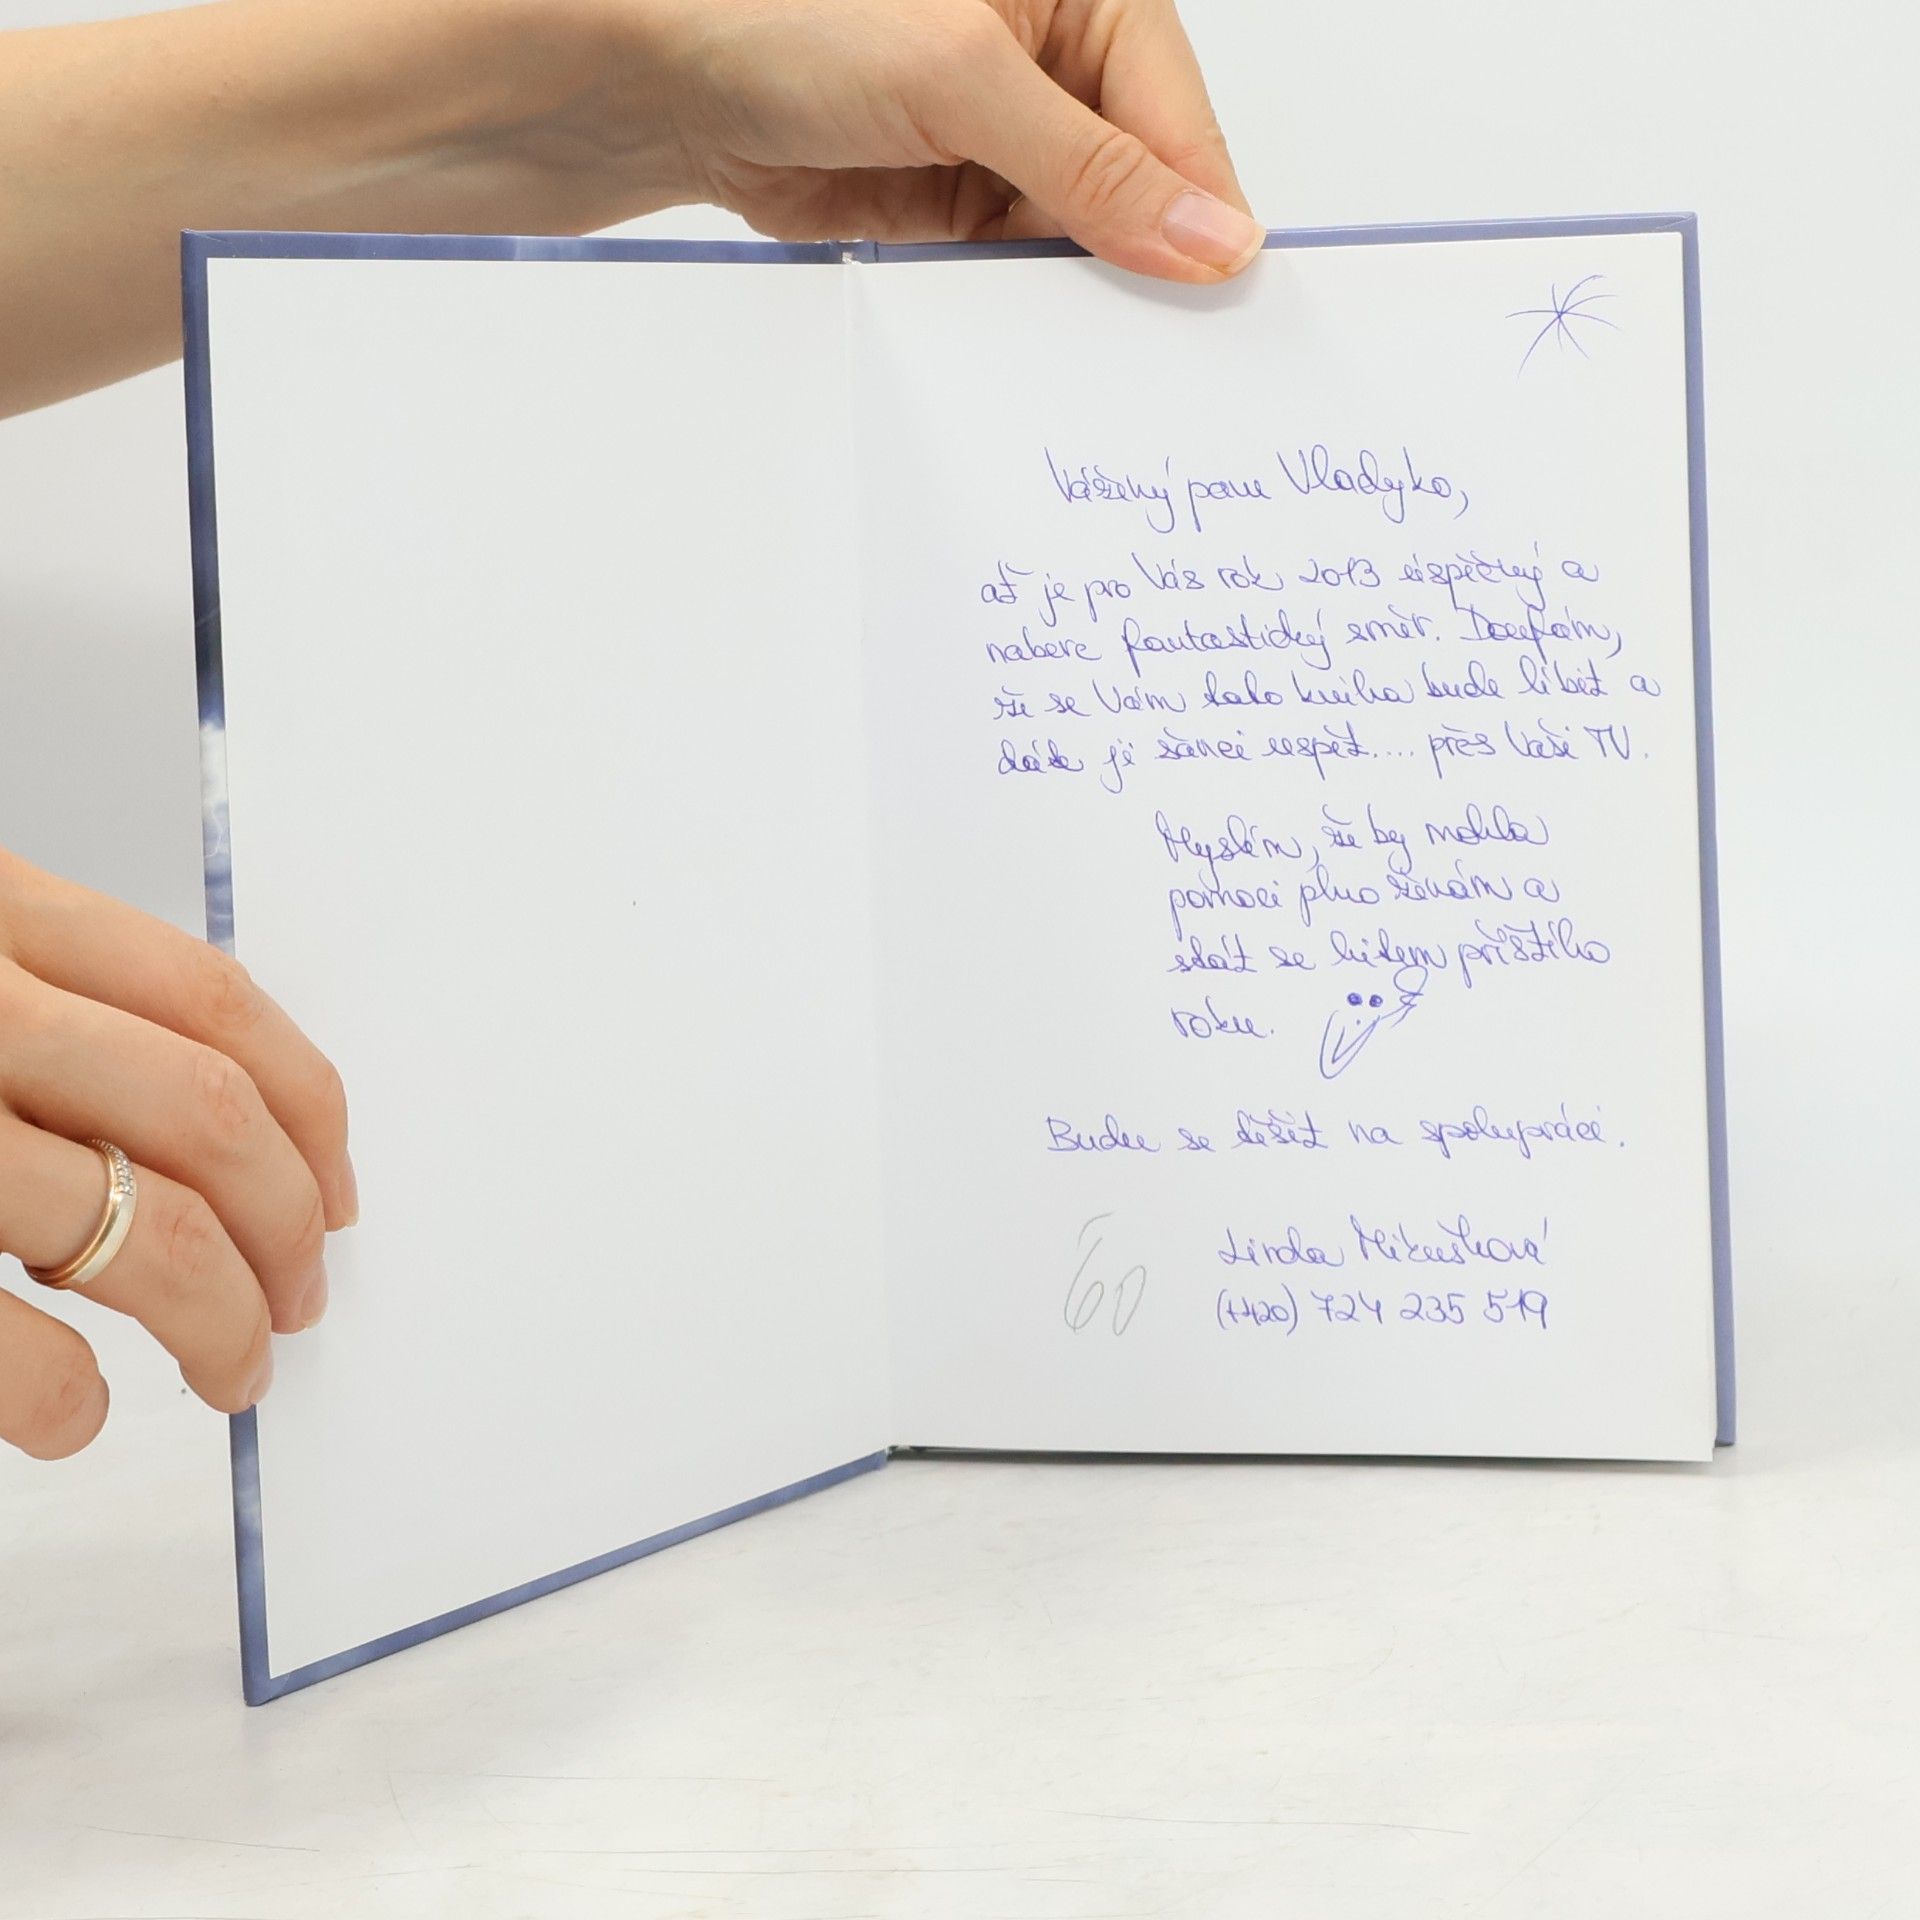 Vážený pane Vladyko,
ať je pro Vás rok 2013 úspěšný a
nabere fantastický směr. Doufám,
že se Vám tato kniha bude líbit a
dáte jí šanci uspět.... přes Vaši TV.
Myslím, že by mohla
pomoci plno ženám a
stát se hitem příštího
roku.
Budu se těšit na spolupráci.
Linda Mikušková
(+420) 724 235 519
60